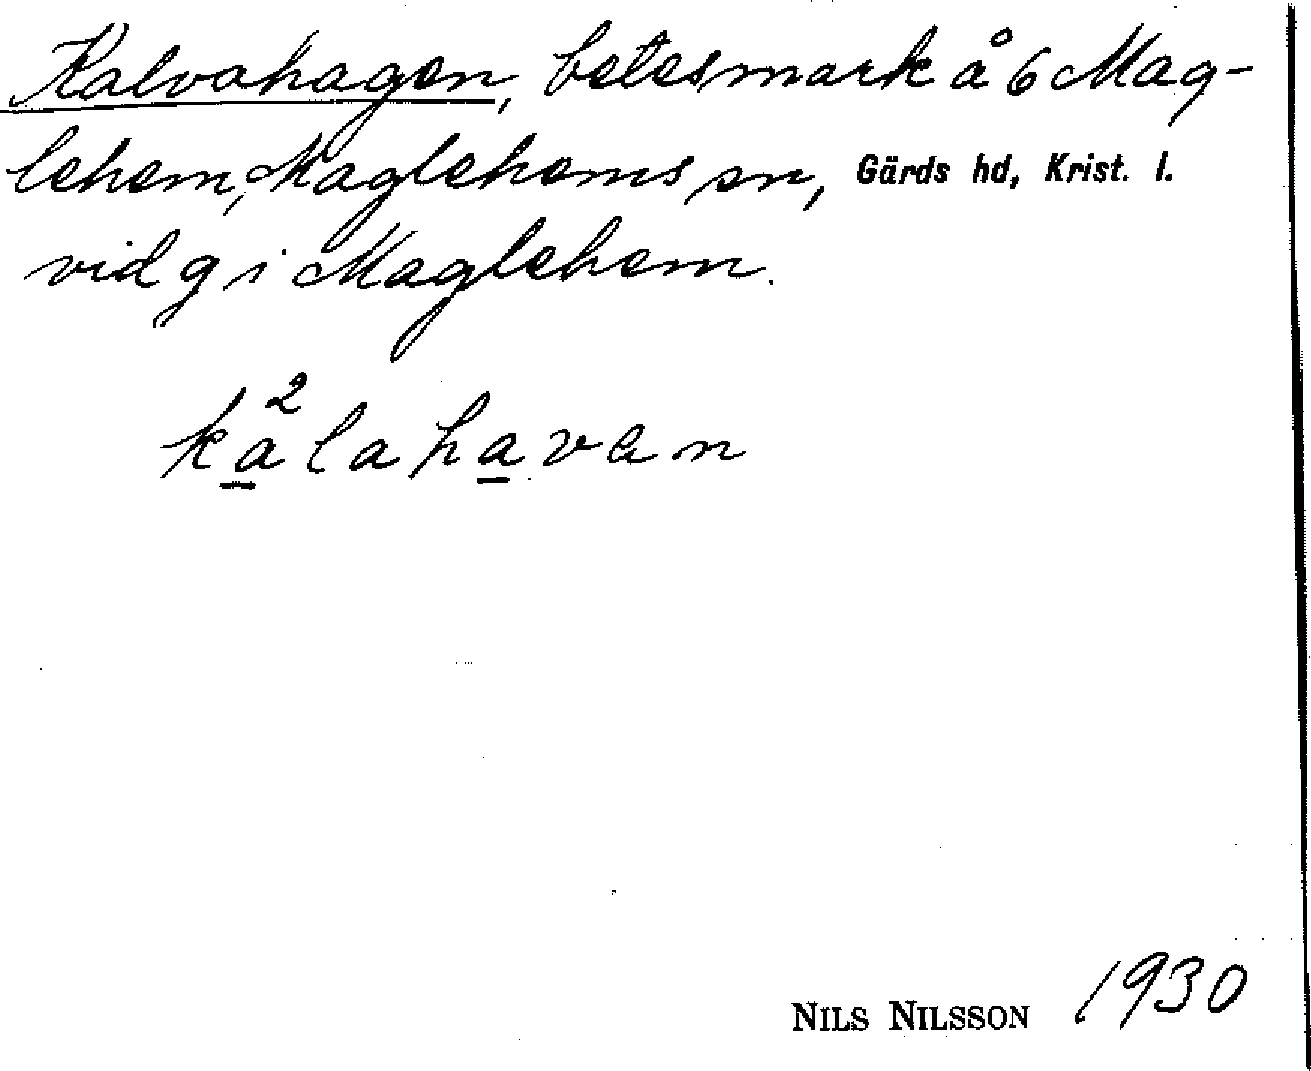 Kalvahagen, betesmark å 6 Mag-
lehem, Maglehems sn, Gärds hd, Krist. l.
vid g i Maglehem.
ka²lahavan
NILS NILSSON 1930